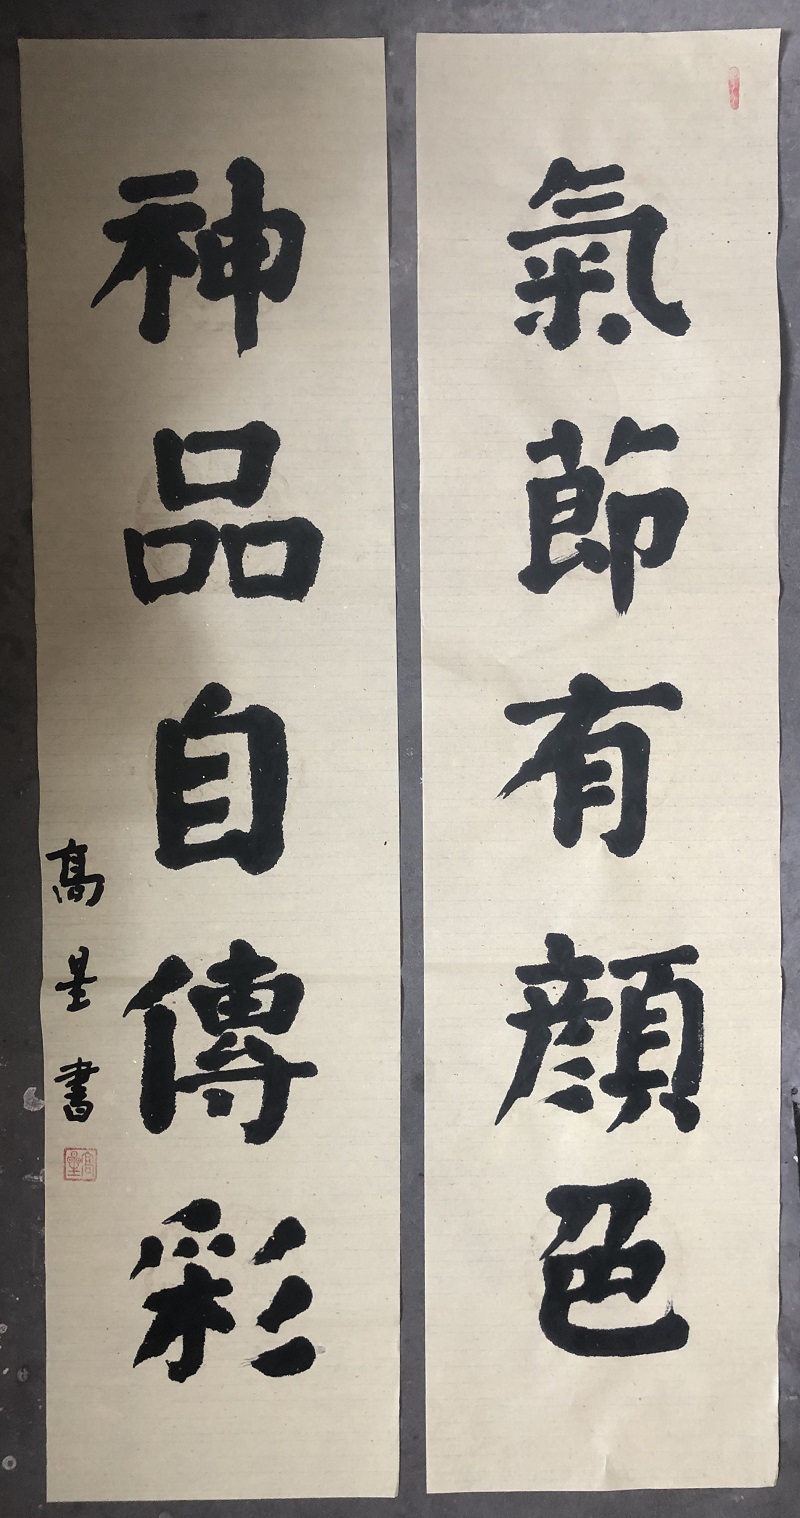 氣節有顏色
神品自傳彩
高星書